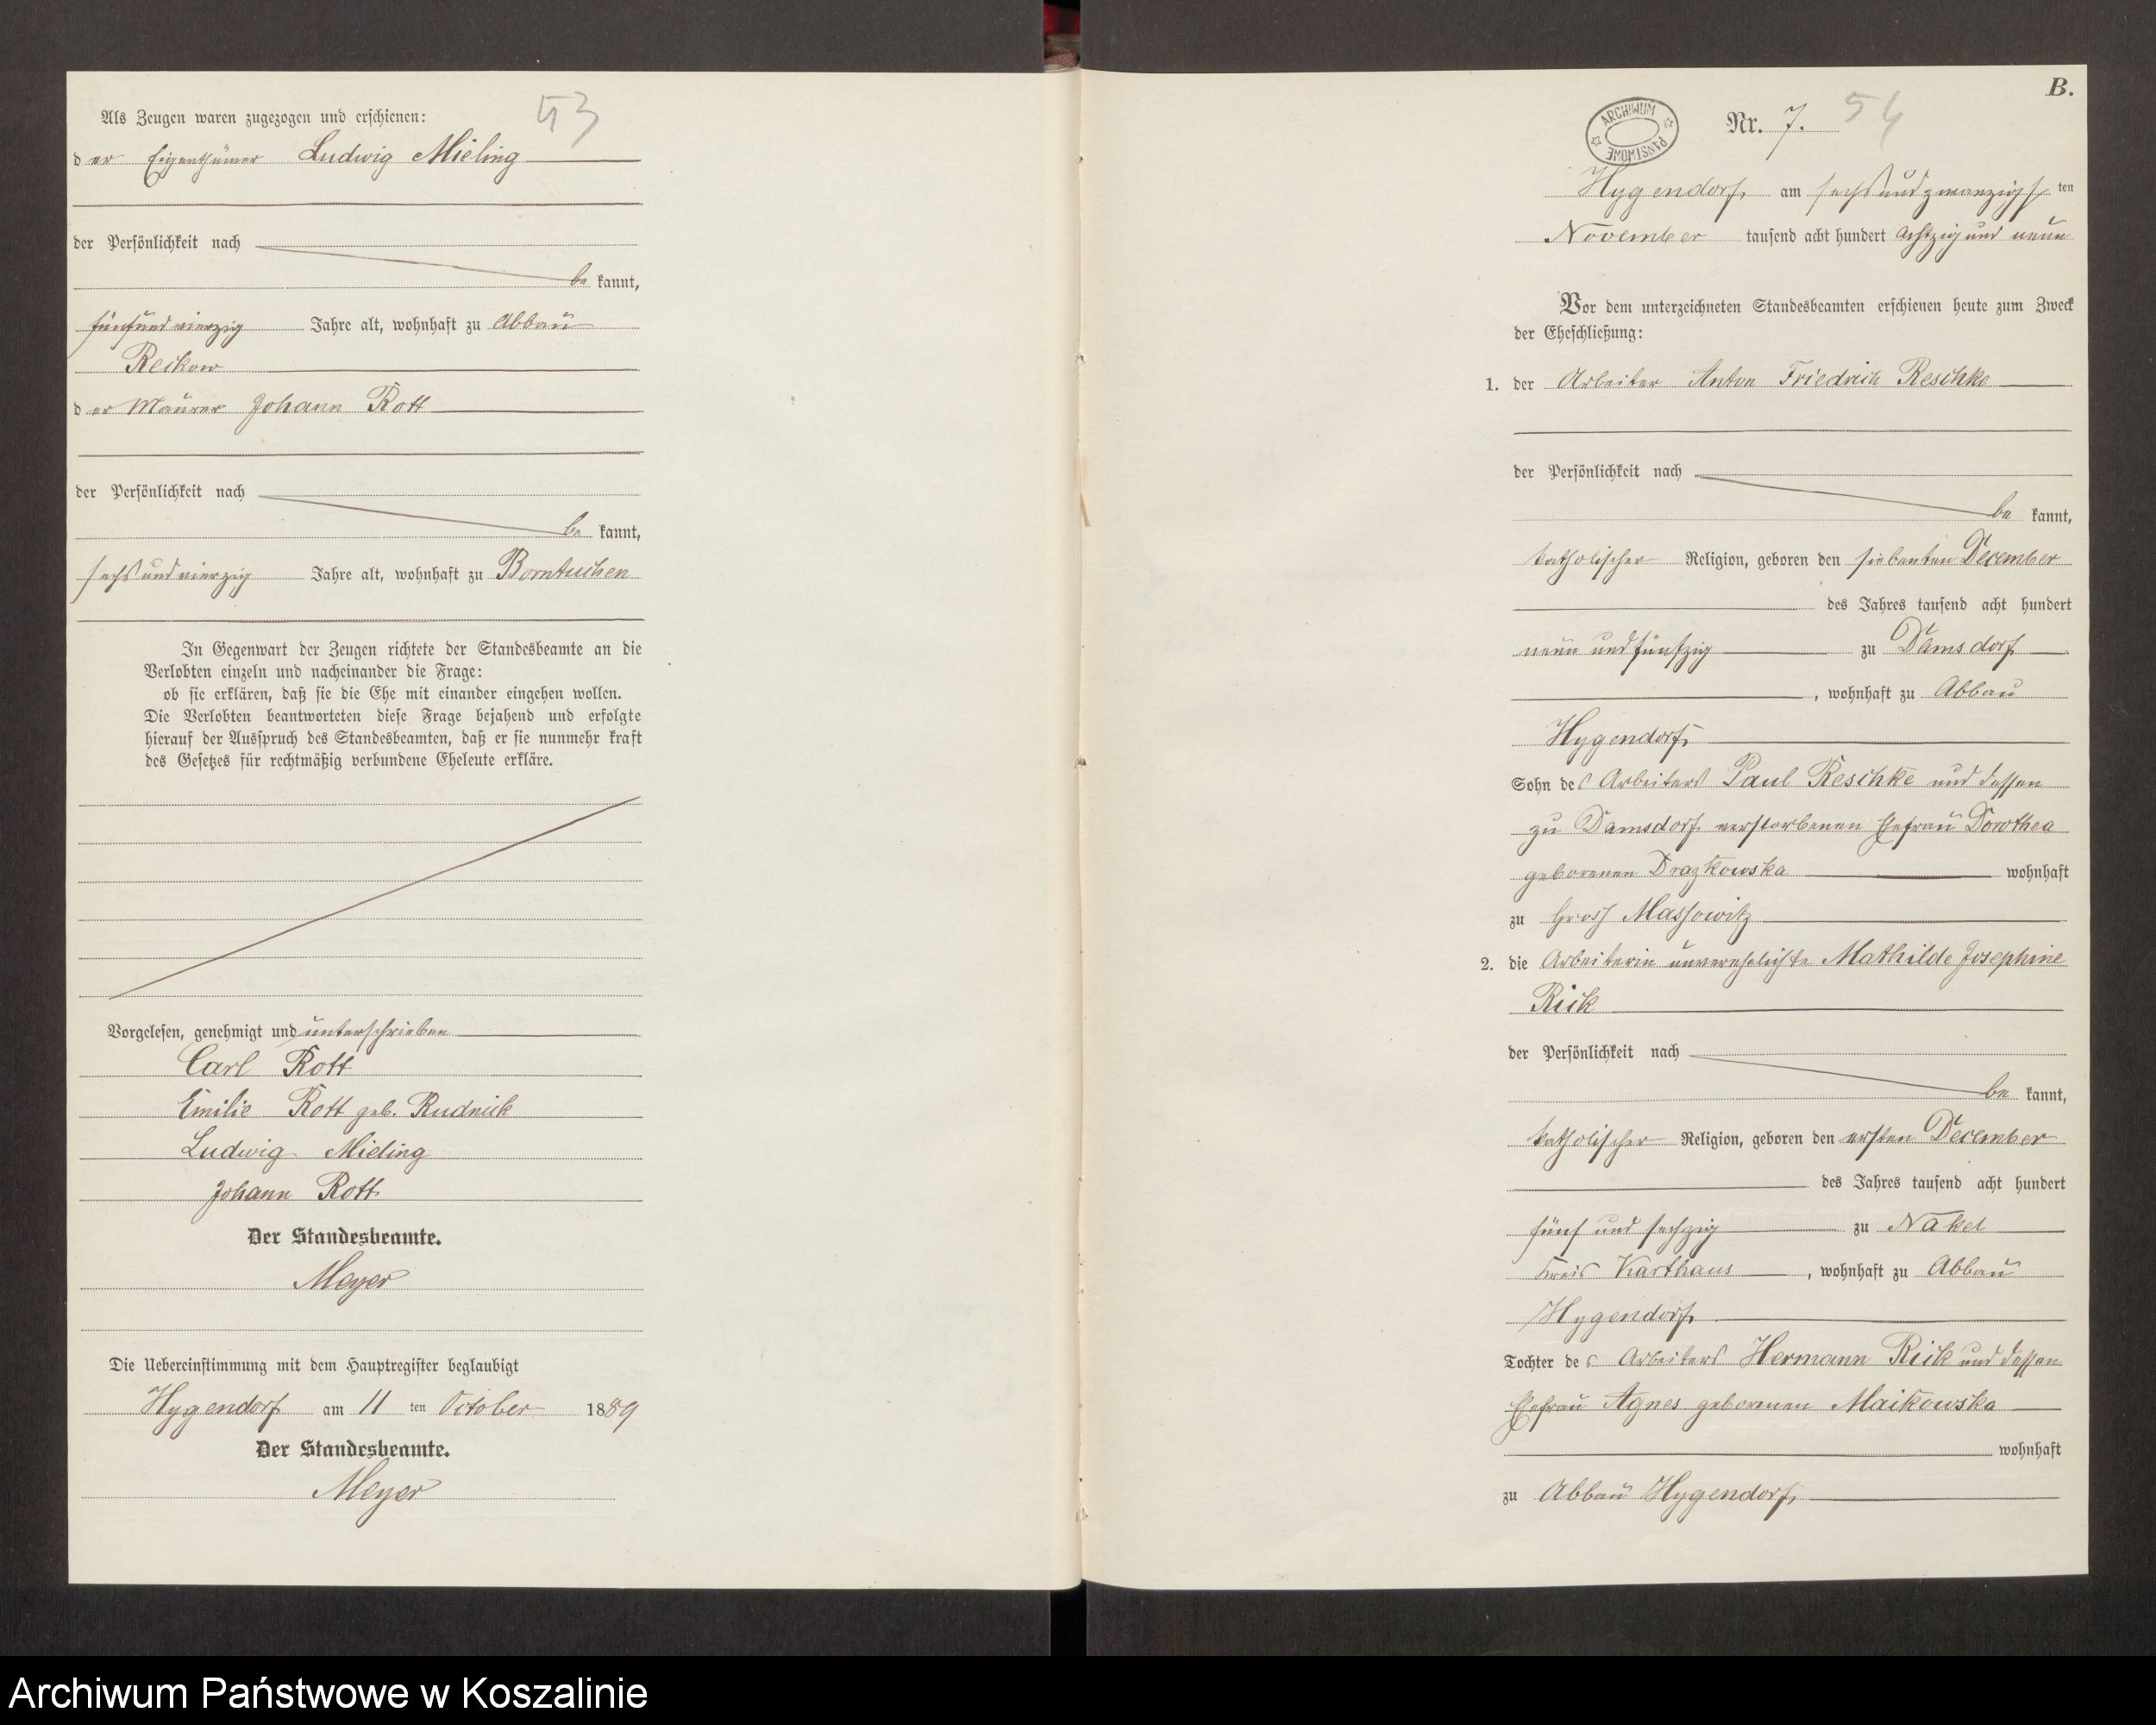 53
Als Zeugen waren zugezogen und erschienen:
der Eigenthümer Ludwig Mieling
der Persönlichkeit nach
be kannt,
fünfundvierzig Jahre alt, wohnhaft zu Abbau
Reckow
der Maurer Johann Rott
der Persönlichkeit nach
be kannt,
sechsundvierzig Jahre alt, wohnhaft zu Borntuchen
In Gegenwart der Zeugen richtete der Standesbeamte an die
Verlobten einzeln und nacheinander die Frage:
ob sie erklären, daß sie die Ehe mit einander eingehen wollen.
Die Verlobten beantworteten diese Frage bejahend und erfolgte
hierauf der Ausspruch des Standesbeamten, daß er sie nunmehr kraft
des Gesetzes für rechtmäßig verbundene Eheleute erkläre.
Vorgelesen, genehmigt und unterschrieben
Carl Rott
Emilie Rott geb. Rudnick
Ludwig Mieling
Johann Rott
Der Standesbeamte.
Meyer
Die Uebereinstimmung mit dem Hauptregister beglaubigt
Hygendorf am 11 ten October 1889
Der Standesbeamte.
Meyer
B.
ARCHIWUM PAŃSTWOWE
Nr. 7. 54
Hygendorf, am sechsundzwanzigsten
November tausend acht hundert achtzig und neun
Vor dem unterzeichneten Standesbeamten erschienen heute zum Zweck
der Eheschließung:
1. der Arbeiter Anton Friedrich Reschke
der Persönlichkeit nach
be kannt,
katholischer Religion, geboren den siebenten December
des Jahres tausend acht hundert
neun und fünfzig zu Damsdorf
, wohnhaft zu Abbau
Hygendorf,
Sohn des Arbeiters Paul Reschke und dessen
zu Damsdorf verstorbenen Ehefrau Dorothea
geborenen Drazkowska wohnhaft
zu Gross Massowitz
2. die Arbeiterin unverehelichte Mathilde Josephine
Rick
der Persönlichkeit nach
be kannt,
katholischer Religion, geboren den ersten December
des Jahres tausend acht hundert
fünf und sechzig zu Nakel
Kreis Karthaus, wohnhaft zu Abbau
Hygendorf,
Tochter des Arbeiters Hermann Rick und dessen
Ehefrau Agnes geborenen Maikowska
wohnhaft
zu Abbau Hygendorf,
Archiwum Państwowe w Koszalinie